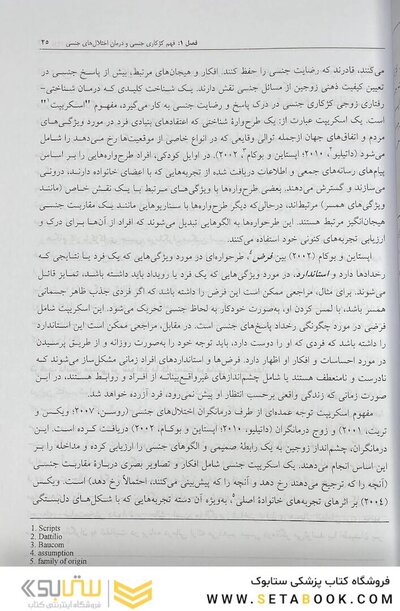 فصل ۱: فهم کژکاری جنسی و درمان اختلال‌های جنسی ۲۵
می‌کنند، قادرند که رضایت جنسی را حفظ کنند. افکار و هیجان‌های مرتبط، بیش از پاسخ جنسی در
تعیین کیفیت ذهنی زوجین از مسائل جنسی نقش دارند. یک شناخت کلیدی که درمان شناختی-
رفتاری زوجی کژکاری جنسی در درک پاسخ و رضایت جنسی به کار می‌گیرد، مفهوم "اسکریپت"۱
است. یک اسکریپت عبارت از: یک طرح‌وارهٔ شناختی که اعتقادهای بنیادی فرد در مورد ویژگی‌های
مردم و اتفاق‌های جهان ازجمله توالی وقایعی که در انواع خاصی از موقعیت‌ها رخ می‌دهد را شامل
می‌شود (داتیلیو۲، ۲۰۱۰؛ اپستاین و بوکام۳، ۲۰۰۲). در اوایل کودکی، افراد طرح‌واره‌هایی را بر اساس
پیام‌های رسانه‌های جمعی و اطلاعات دریافت شده از تجربه‌هایی که با اعضای خانواده دارند، درونی
می‌سازند و گسترش می‌دهند. بعضی طرح‌واره‌ها با ویژگی‌های مرتبط با یک نقش خاص (مانند
ویژگی‌های همسر) مرتبط‌اند، درحالی‌که دیگر طرح‌واره‌ها با سناریوهایی مانند یک مقاربت جنسی
هیجان‌انگیز مرتبط هستند. این طرحواره‌ها به الگوهایی تبدیل می‌شوند که افراد از آن‌ها برای درک و
ارزیابی تجربه‌های کنونی خود استفاده می‌کنند.
اپستاین و بوکام (۲۰۰۲) بین فرض۴، طرحواره‌ای در مورد ویژگی‌هایی که یک فرد یا نتایجی که
رخدادها دارد و استاندارد، در مورد ویژگی‌هایی که یک فرد یا رویداد باید داشته باشد، تمایز قائل
می‌شوند. برای مثال، مراجعی ممکن است این فرض را داشته باشد که اگر فردی جذب ظاهر جسمی
همسر باشد، با لمس کردن او، به‌صورت خودکار به لحاظ جنسی تحریک می‌شود. این اسکریپت شامل
فرضی در مورد چگونگی رخداد پاسخ‌های جنسی است. در مقابل، مراجعی ممکن است این استاندارد
را داشته باشد که فردی که او را دوست دارد، باید توجه خود را به‌صورت روزانه و از طریق پرسیدن
در مورد احساسات و افکار او اظهار دارد. فرض‌ها و استانداردهای افراد زمانی مشکل‌ساز می‌شوند که
نادرست و نامنعطف هستند یا شامل چشم‌اندازهای غیرواقع‌بینانه از افراد و روابط هستند، در این
صورت زمانی که زندگی واقعی برحسب انتظار او پیش نمی‌رود، فرد آزرده خواهد شد.
مفهوم اسکریپت توجه عمده‌ای از طرف درمانگران اختلال‌های جنسی (روسن، ۲۰۰۷؛ ویکس و
تریت، ۲۰۰۱) و زوج درمانگران (داتیلیو، ۲۰۱۰؛ اپستاین و بوکام، ۲۰۰۲) دریافت کرده است. این
درمانگران، چشم‌انداز زوجین به یک رابطهٔ صمیمی و الگوهای جنسی را ارزیابی کرده و مداخله را بر
این اساس انجام می‌دهند. یک اسکریپت جنسی شامل افکار و تصاویر بصری دربارهٔ مقاربت جنسی
(آنچه را که ترجیح می‌دهند رخ دهد و آنچه را که پیش‌بینی می‌کنند، احتمالاً رخ دهد) است. ویکس
(۲۰۰۴) بر اثرهای تجربه‌های خانوادهٔ اصلی۵، به‌ویژه آن دسته تجربه‌هایی که با شکل‌های دلبستگی
1. Scripts
2. Dattilio
3. Baucom
4. assumption
5. family of origin
ستابوک
فروشگاه اینترنتی کتاب
فروشگاه کتاب پزشکی ستابوک
WWW.SETABOOK.COM